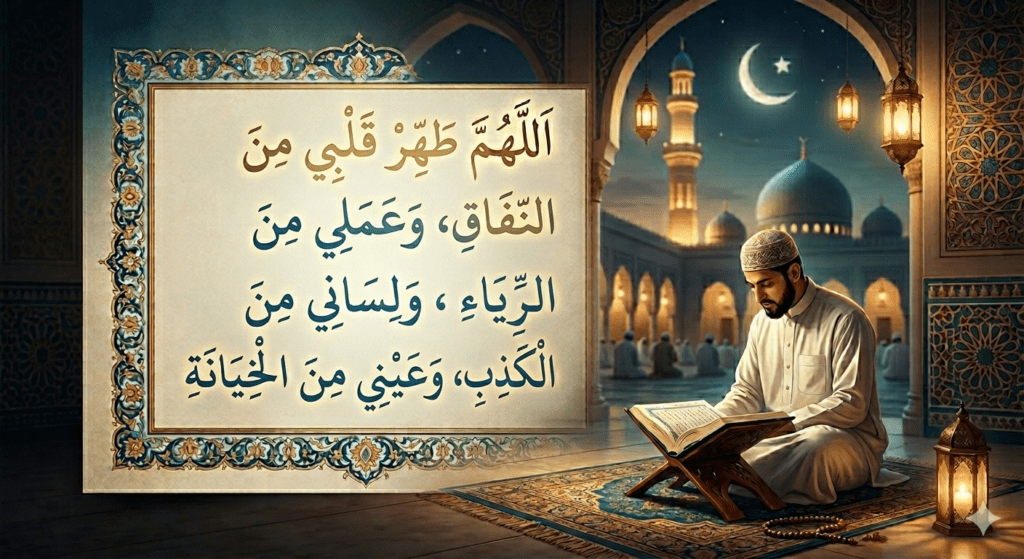 اَللَّهُمَّ طَهِّرْ قَلْبِي مِنَ
النِّفَاقِ، وَعَمَلِي مِنَ
الرِّيَاءِ ، وَلِسَانِي مِنَ
الْكَذِبِ، وَعَيْنِي مِنَ الْخِيَانَةِ